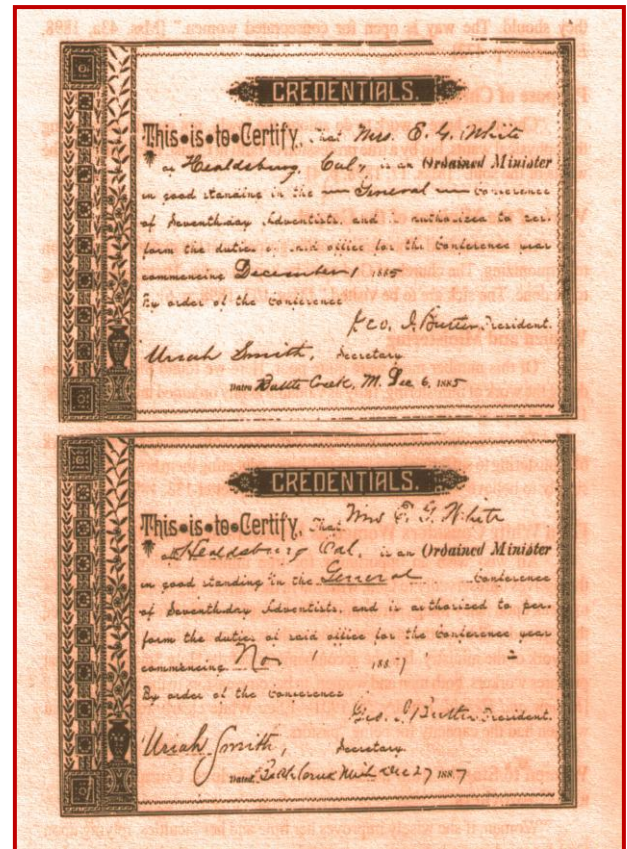 CREDENTIALS.
This is to Certify, That Mrs. E. G. White
of Healdsburg, Cal, is an Ordained Minister
in good standing in the General Conference
of Seventh day Adventists, and is authorized to per-
form the duties of said office for the Conference year
commencing December 1 1885
By order of the Conference
Geo. I. Butler, President.
Uriah Smith, Secretary
DATED Battle Creek, M. Dec 6, 1885
CREDENTIALS.
This is to Certify, That Mrs E. G. White
of Healdsburg Cal, is an Ordained Minister
in good standing in the General Conference
of Seventh day Adventists, and is authorized to per-
form the duties of said office for the Conference year
commencing 1887
By order of the Conference
Geo. I. Butler, President.
Uriah Smith, Secretary
DATED Mich Dec 27 1887